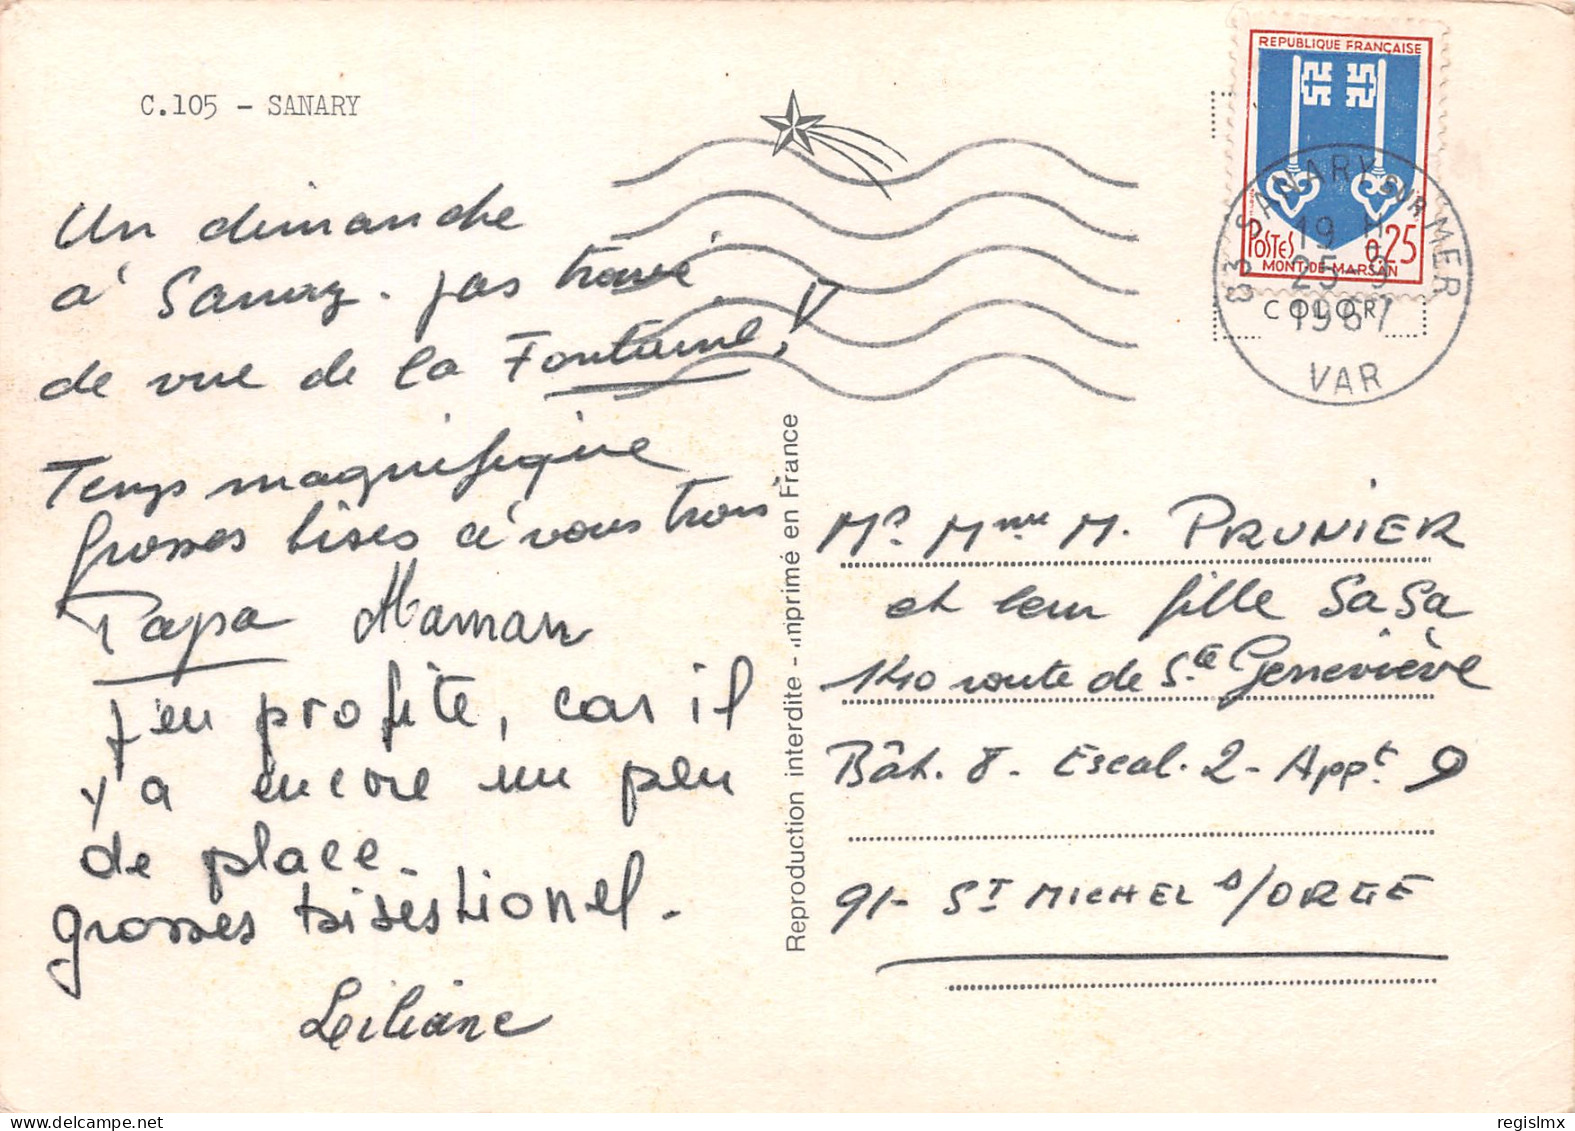 C.105 - SANARY
Un dimanche
à Sanary. pas trouvé
de vue de la Fontaine !
Temps magnifique
Grosses bises à vous trois
Papa Maman
J'en profite, car il
y a encore un peu
de place.
grosses bises Lionel.
Liliane
Reproduction interdite - Imprimé en France
REPUBLIQUE FRANÇAISE
POSTES 0,25
MONT-DE-MARSAN
83 SANARY SUR MER
19 H
25-9
1967
VAR
COLOR
Mr Mme M. PRUNIER
et leur fille SaSa
140 route de Ste Geneviève
Bât. 8 - Escal. 2 - Appt 9
91- ST MICHEL s/ORGE
regislmx